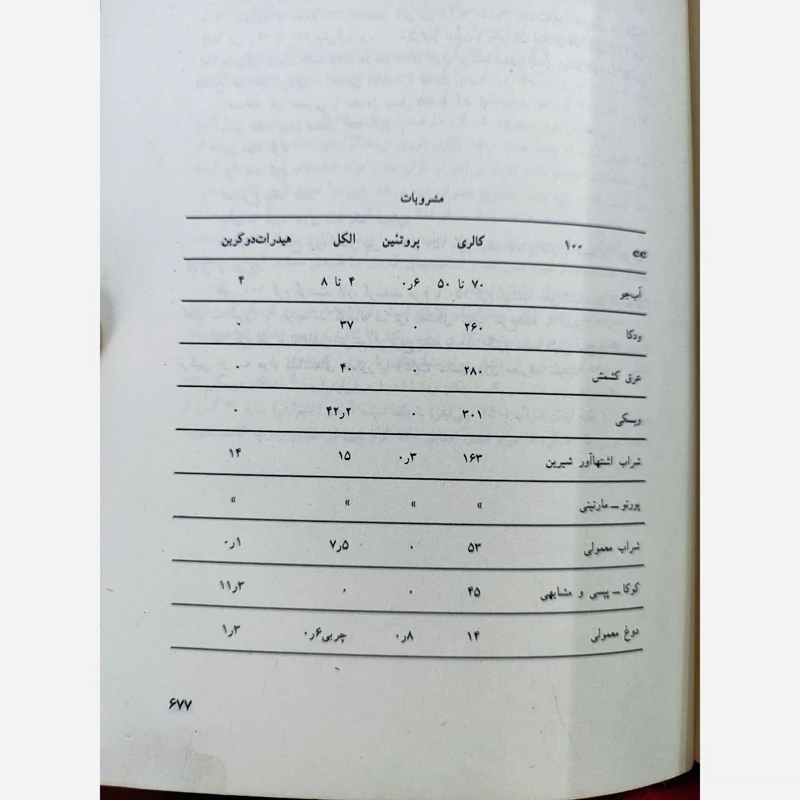 مشروبات
۱۰۰ cc کالری پروتئین الکل هیدرات‌دوکربن
آب‌جو ۷۰ تا ۵۰ ۰٫۶ ۴ تا ۸ ۴
ودکا ۲۶۰ ۰ ۳۷ ۰
عرق کشمش ۲۸۰ ۰ ۴۰ ۰
ویسکی ۳۰۱ ۰ ۴۲٫۲ ۰
شراب اشتهاآور شیرین ۱۶۳ ۰٫۳ ۱۵ ۱۴
پورتو ــ مارتینی » » » »
شراب معمولی ۵۳ ۰ ۷٫۵ ۰٫۱
کوکا ــ پپسی و مشابهی ۴۵ ۰ ۰ ۱۱٫۳
دوغ معمولی ۱۴ ۰٫۸ چربی ۰٫۶ ۱٫۳
۶۷۷